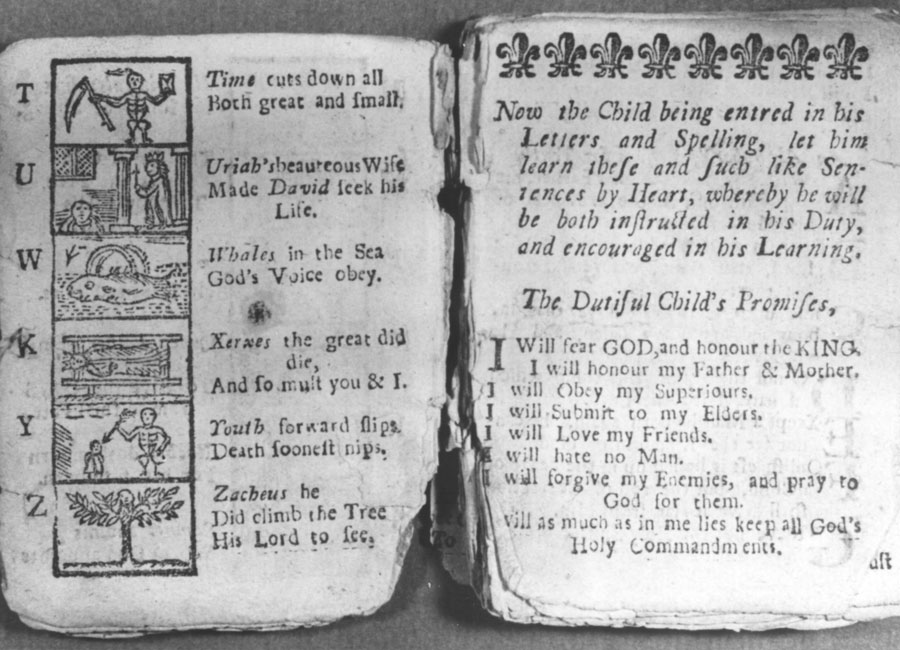 T
Time cuts down all
Both great and ſmall.
U
Uriah's beauteous Wife
Made David ſeek his
Life.
W
Whales in the Sea
God's Voice obey.
X
Xerxes the great did
die,
And ſo muſt you & I.
Y
Youth forward ſlips
Death ſooneſt nips.
Z
Zacheus he
Did climb the Tree
His Lord to ſee,
To
Now the Child being entred in his
Letters and Spelling, let him
learn theſe and ſuch like Sen-
tences by Heart, whereby he will
be both inſtructed in his Duty,
and encouraged in his Learning.
The Dutiful Child's Promiſes,
I Will fear GOD, and honour the KING.
I will honour my Father & Mother.
I will Obey my Superiours.
I will Submit to my Elders.
I will Love my Friends.
I will hate no Man.
I will forgive my Enemies, and pray to
God for them.
will as much as in me lies keep all God's
Holy Commandments.